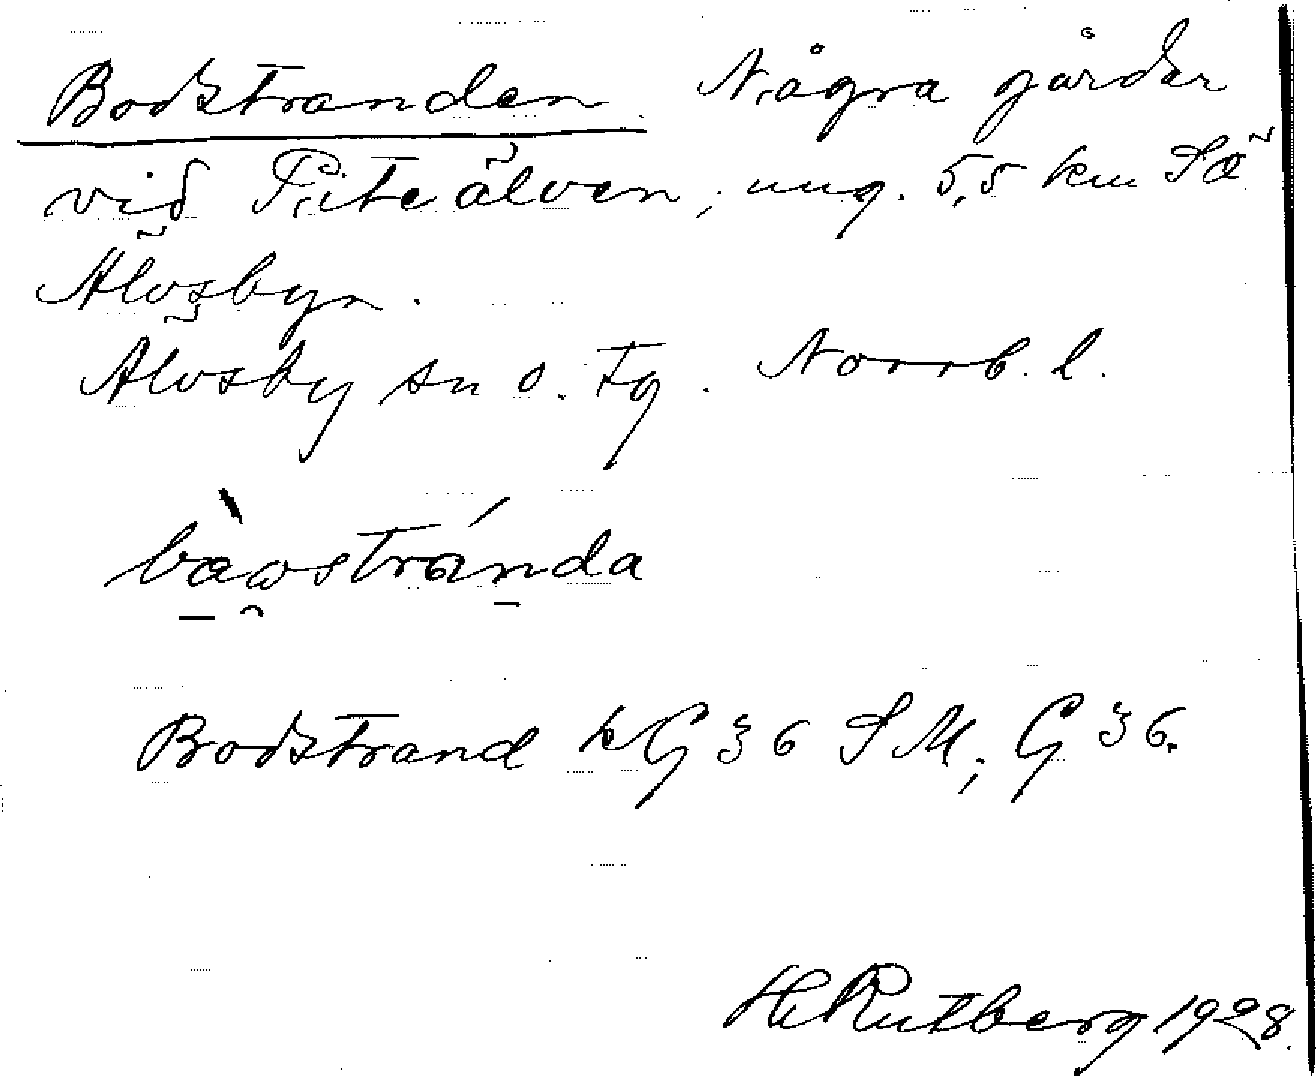 Bodstranden Några gårder
vid Piteälven, ung. 5,5 km SÖ
Älvsbyn.
Älvsby sn o. tg. Norrb. l.
bàωstránda
Bodstrand kG 36 SM; G 36.
H. Rutberg 1928.